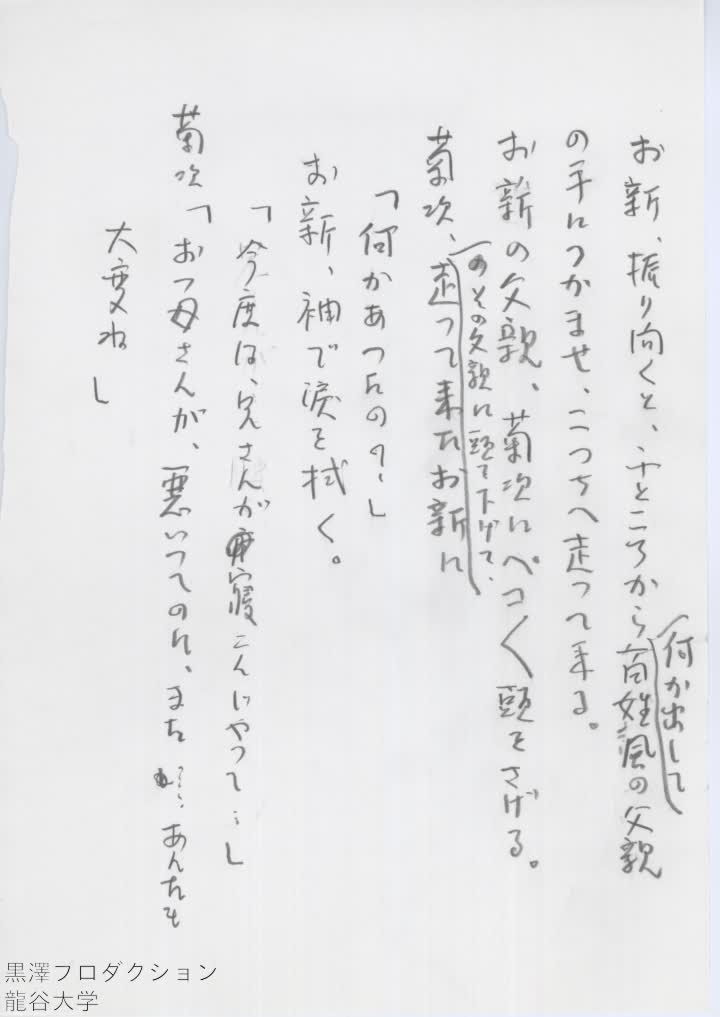 お新、振り向くと、ふところから百姓風の父親
何か出して
の手につかませ、こっちへ走って来る。
お新の父親、菊次にペコ〱頭をさげる。
のその父親に頭で下げて、
菊次、走って来たお新に
「何かあったの？」
お新、袖で涙を拭く。
「今度は、兄さんが寝こんじゃって…」
菊次「おっ母さんが、悪いってのに、また……あんたも
大変ね」
黒澤プロダクション
龍谷大学